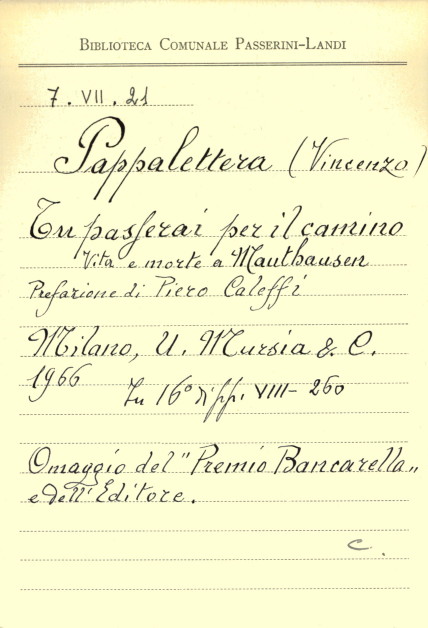 BIBLIOTECA COMUNALE PASSERINI-LANDI
7. VII. 21
Pappalettera (Vincenzo)
Tu passerai per il camino
Vita e morte a Mauthausen
Prefazione di Piero Caleffi
Milano, U. Mursia & C.
1966 In 16° di pp. VIII-260
Omaggio del "Premio Bancarella"
e dell'Editore.
C.